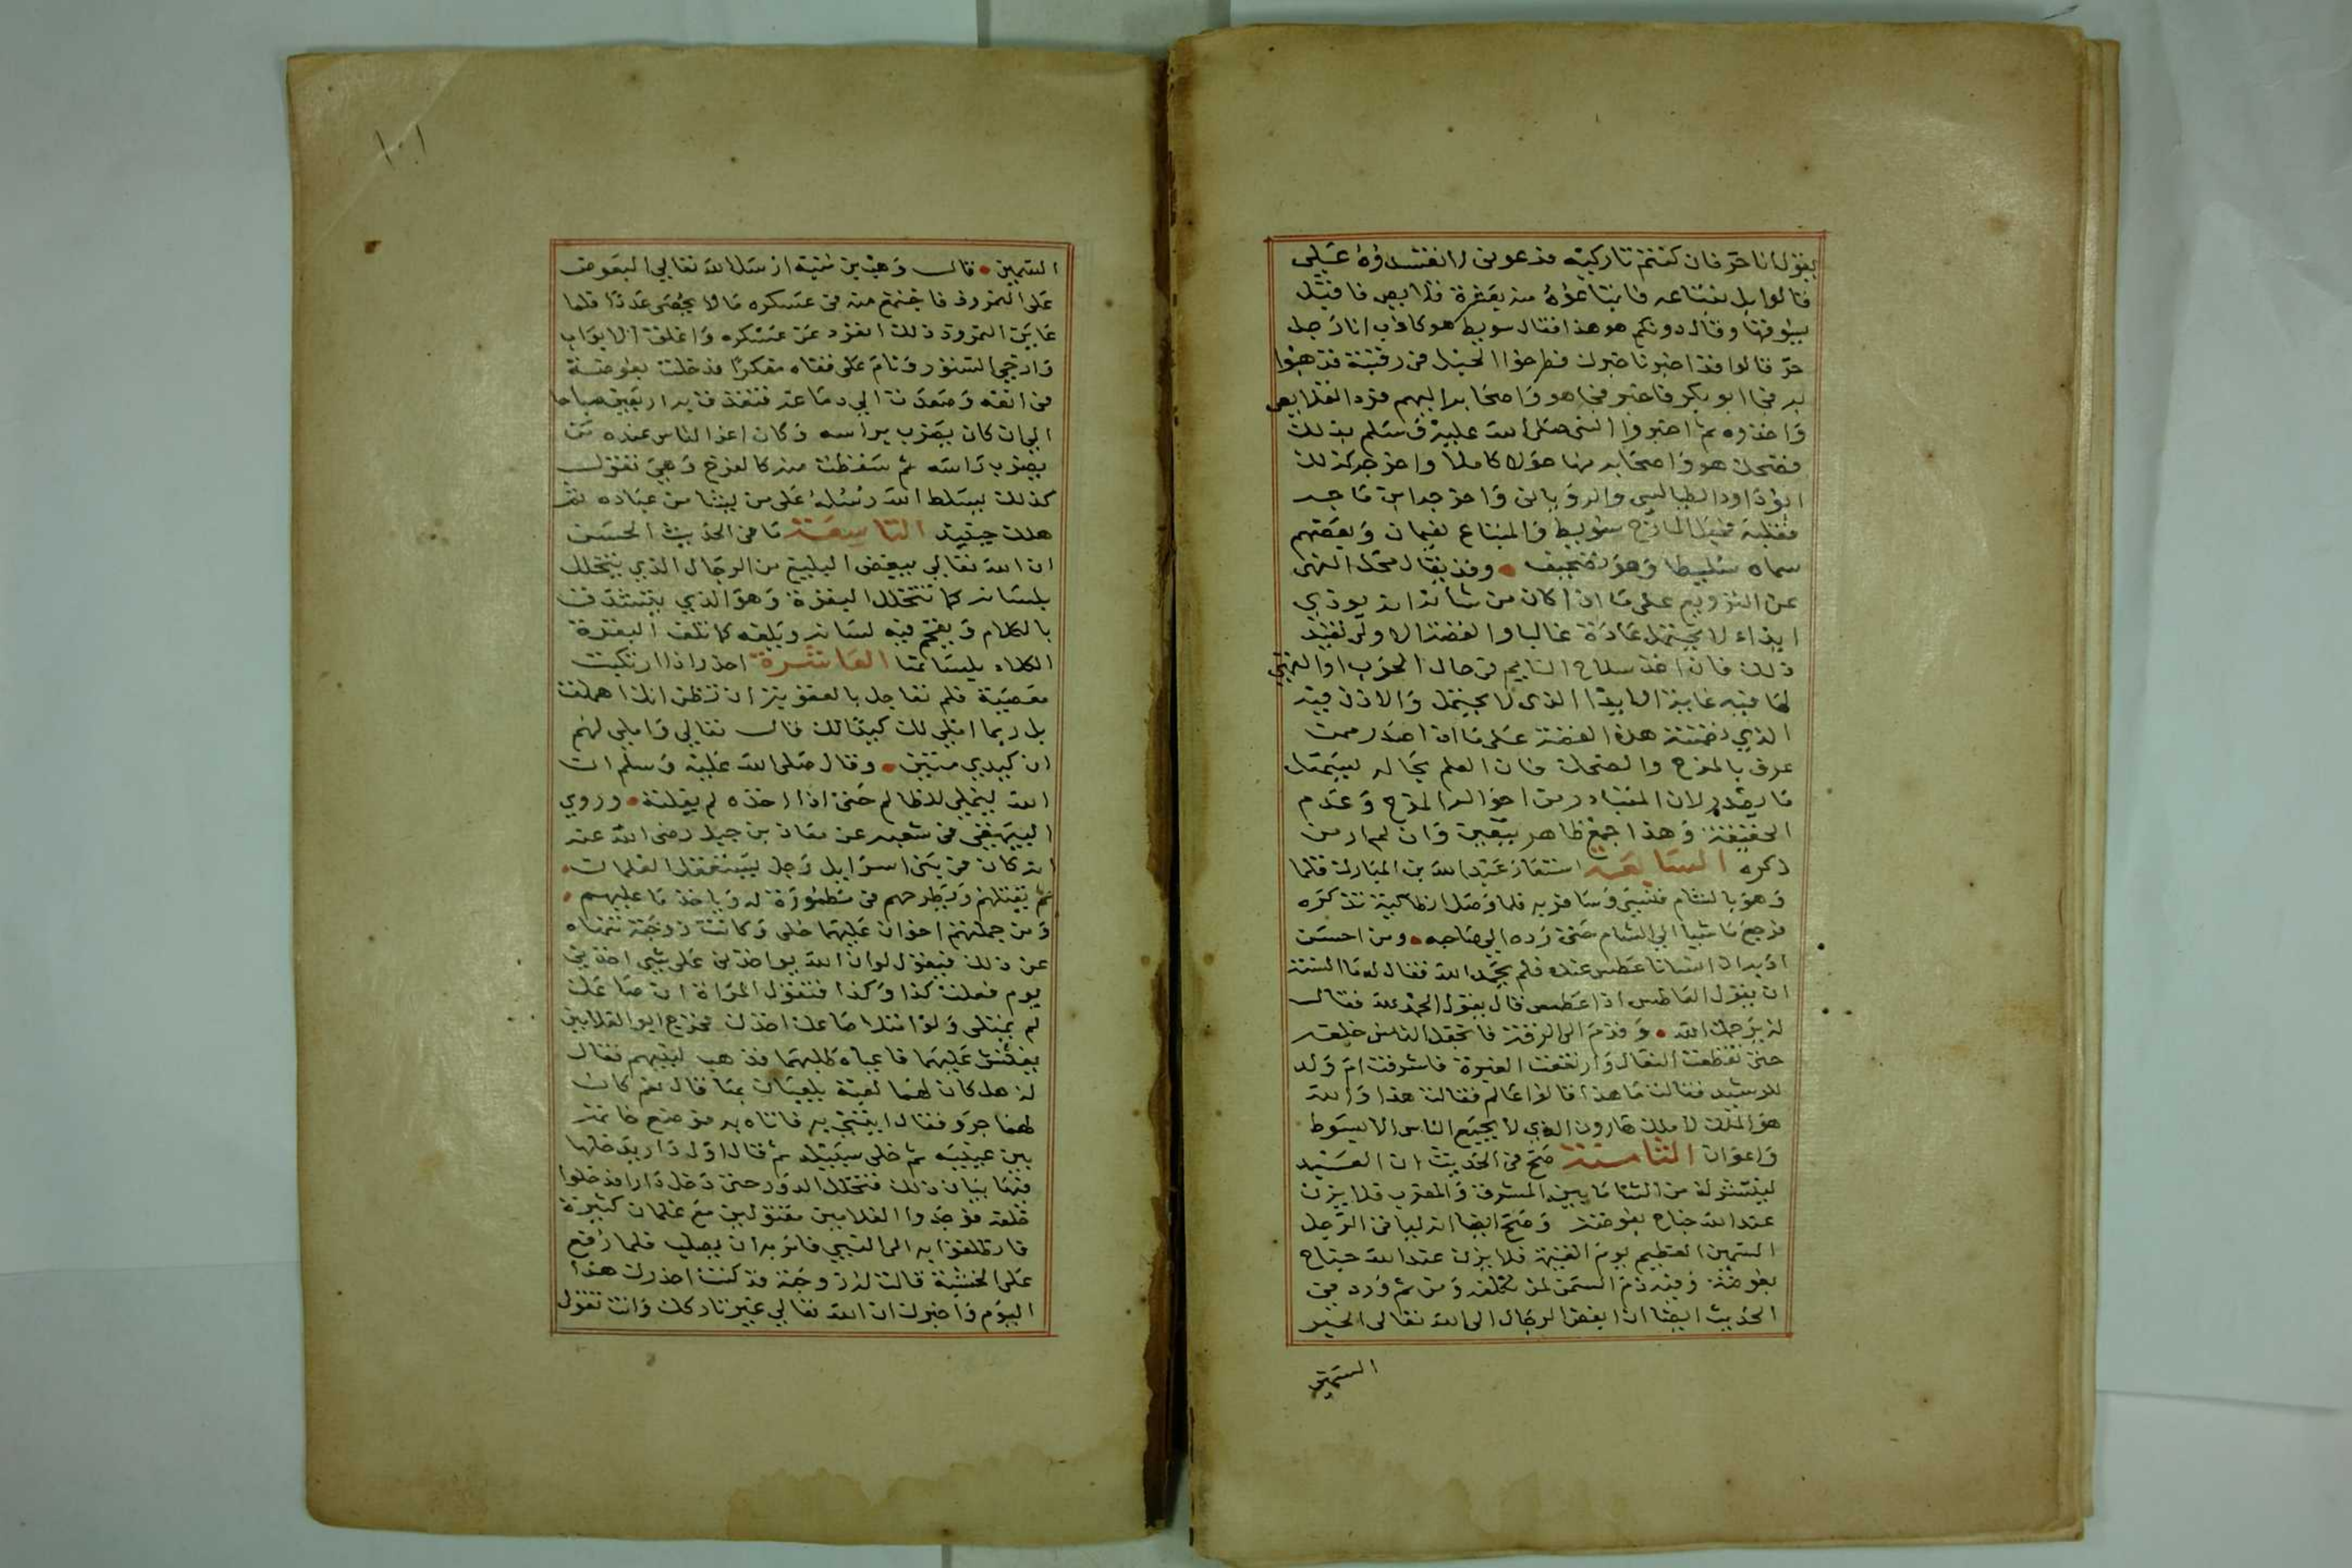 يقول انا حر فان كنتم تاركيه فدعوني لا تفسدوه علي
قالوا بل نبتاعه فابتاعوه منه بعشرة قلايص فاقبل
يسوقها وقال دونكم هو هذا فقال سويبط هو كاذب انا رجل
حر قالوا قد اخبرنا خبرك فطرحوا الحبل في رقبته فذهبوا
به فجا ابو بكر فاخبر فذهب هو واصحابه اليهم فرد القلايص
واخذوه ثم اخبروا النبي صلى الله عليه وسلم بذلك
فضحك هو واصحابه منها حولا كاملا واخرجه كذلك
ابو داود الطيالسي والروياني واخرجه ابن ماجه
فقلبه فجعل المازح سويبط والمبتاع نعيمان وبعضهم
سماه سليطا وهو تصحيف وقد يقال محل النهي
عن الترويع على ما اذا كان من شانه انه يوذي
ايذاء لا يحتمل عادة غالبا والقصة الاولى تفيد
ذلك فان اخذ سلاح النايم في حال الحرب او التهيي
لها فيه غاية الايذا الذي لا يحتمل والاذن فيه
الذي تضمنته هذه القصة على ما اذا صدر ممن
عرف بالمزح والضحك فان العلم بحاله يسهل
ما يصدر لان المتبادر من احواله المزح وعدم
الحقيقة وهذا جمع ظاهر متعين وان لم ار من
ذكره السابعة استعار عبد الله بن المبارك قلما
وهو بالشام فنسي وسافر به فلما وصل انطاكية تذكره
فرجع ماشيا الى الشام حتى رده الى صاحبه ومن احسن
ادبه ان انسانا عطس عنده فلم يحمد الله فقال له ما السنة
ان يقول العاطس اذا عطس قال يقول الحمد لله فقال
له يرحمك الله وقدم الى الرقة فانجفل الناس خلفه
حتى تقطعت النعال وارتفعت الغبرة فاشرفت ام ولد
للرشيد فقالت ما هذا قالوا عالم فقالت هذا والله
هو الملك لا ملك هارون الذي لا يجمع الناس الا بسوط
واعوان الثامنة صح في الحديث ان العبد
لينشر له من الثنا ما بين المشرق والمغرب فلا يزن
عند الله جناح بعوضة وصح ايضا انه لياتي الرجل
السمين العظيم يوم القيمة فلا يزن عند الله جناح
بعوضة وفيه ذم السمن لمن تكلفه ومن ثم ورد في
الحديث ايضا ان ابغض الرجال الى الله تعالى الحبر
السمين
١٠١
السمين قال وهب بن منبه ارسل الله تعالى البعوض
على النمروذ فاجتمع منه في عسكره ما لا يحصى عددا فلما
عاين النمروذ ذلك انفرد عن عسكره واغلق الابواب
وارخى الستور ونام على قفاه مفكرا فدخلت بعوضة
في انفه وصعدت الى دماغه فتغذت به اربعين صباحا
الى ان كان يضرب براسه وكان اعز الناس عنده من
يضرب راسه ثم سقطت منه كالفرخ وهي تقول
كذلك يسلط الله رسله على من يشا من عباده ثم
هلك حينيذ التاسعة ما في الحديث الحسن
ان الله تعالى يبغض البليغ من الرجال الذي يتخلل
بلسانه كما تتخلل البقرة وهو الذي يتشدق
بالكلام ويفخم فيه لسانه ويلفه كما تلف البقرة
الكلاء بلسانها العاشرة احذر اذا ارتكبت
معصية فلم تعاجل بالعقوبة ان تظن انك اهملت
بل ربما املي لك كيدا لك قال تعالى واملي لهم
ان كيدي متين وقال صلى الله عليه وسلم ان
الله ليملي للظالم حتى اذا اخذه لم يفلته وروي
البيهقي في شعبه عن معاذ بن جبل رضي الله عنه
انه كان في بني اسرايل رجل يستغفل الغلمان
ثم يقتلهم ويطرحهم في مطمورة له وياخذ ما عليهم
ومن جملتهم اخوان عليهما حلي وكانت زوجته تنهاه
عن ذلك فيقول لو ان الله يواخذني على شي اخذني
يوم فعلت كذا وكذا فتقول المراة ان صاعك
لم يمتلي ولو امتلا صاعك اخذت فخرج ابو الغلامين
يفتش عليهما فاعياه طلبهما فذهب لنبيهم فقال
له هل كان لهما لعبة يلعبان بها قال نعم كان
لهما جرو فقال ايتني به فاتاه به فوضع خاتمه
بين عينيه ثم خلى سبيله ثم قال اول دار يدخلها
فيها بيان ذلك فتخلل الدور حتى دخل دارا فدخلوا
خلفه فوجدوا الغلامين مقتولين مع غلمان كثيرة
فانطلقوا به الى النبي فامر به ان يصلب فلما رفع
على الخشبة قالت له زوجته قد كنت احذرك هذا
اليوم واخبرك ان الله تعالى غير تاركك وانت تقول